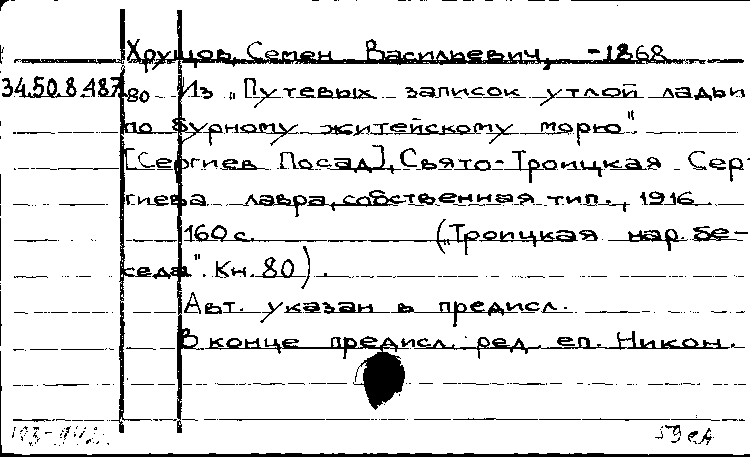 Хрущов, Семен Васильевич, -1868
34.50.8.487/80 Из „Путевых записок утлой ладьи
по бурному житейскому морю".
[Сергиев Посад], Свято-Троицкая Сер-
гиева лавра, собственная тип., 1916.
160 с. („Троицкая нар. бе-
седа". Кн. 80).
Авт. указан в предисл.
В конце предисл. ред. еп. Никон.